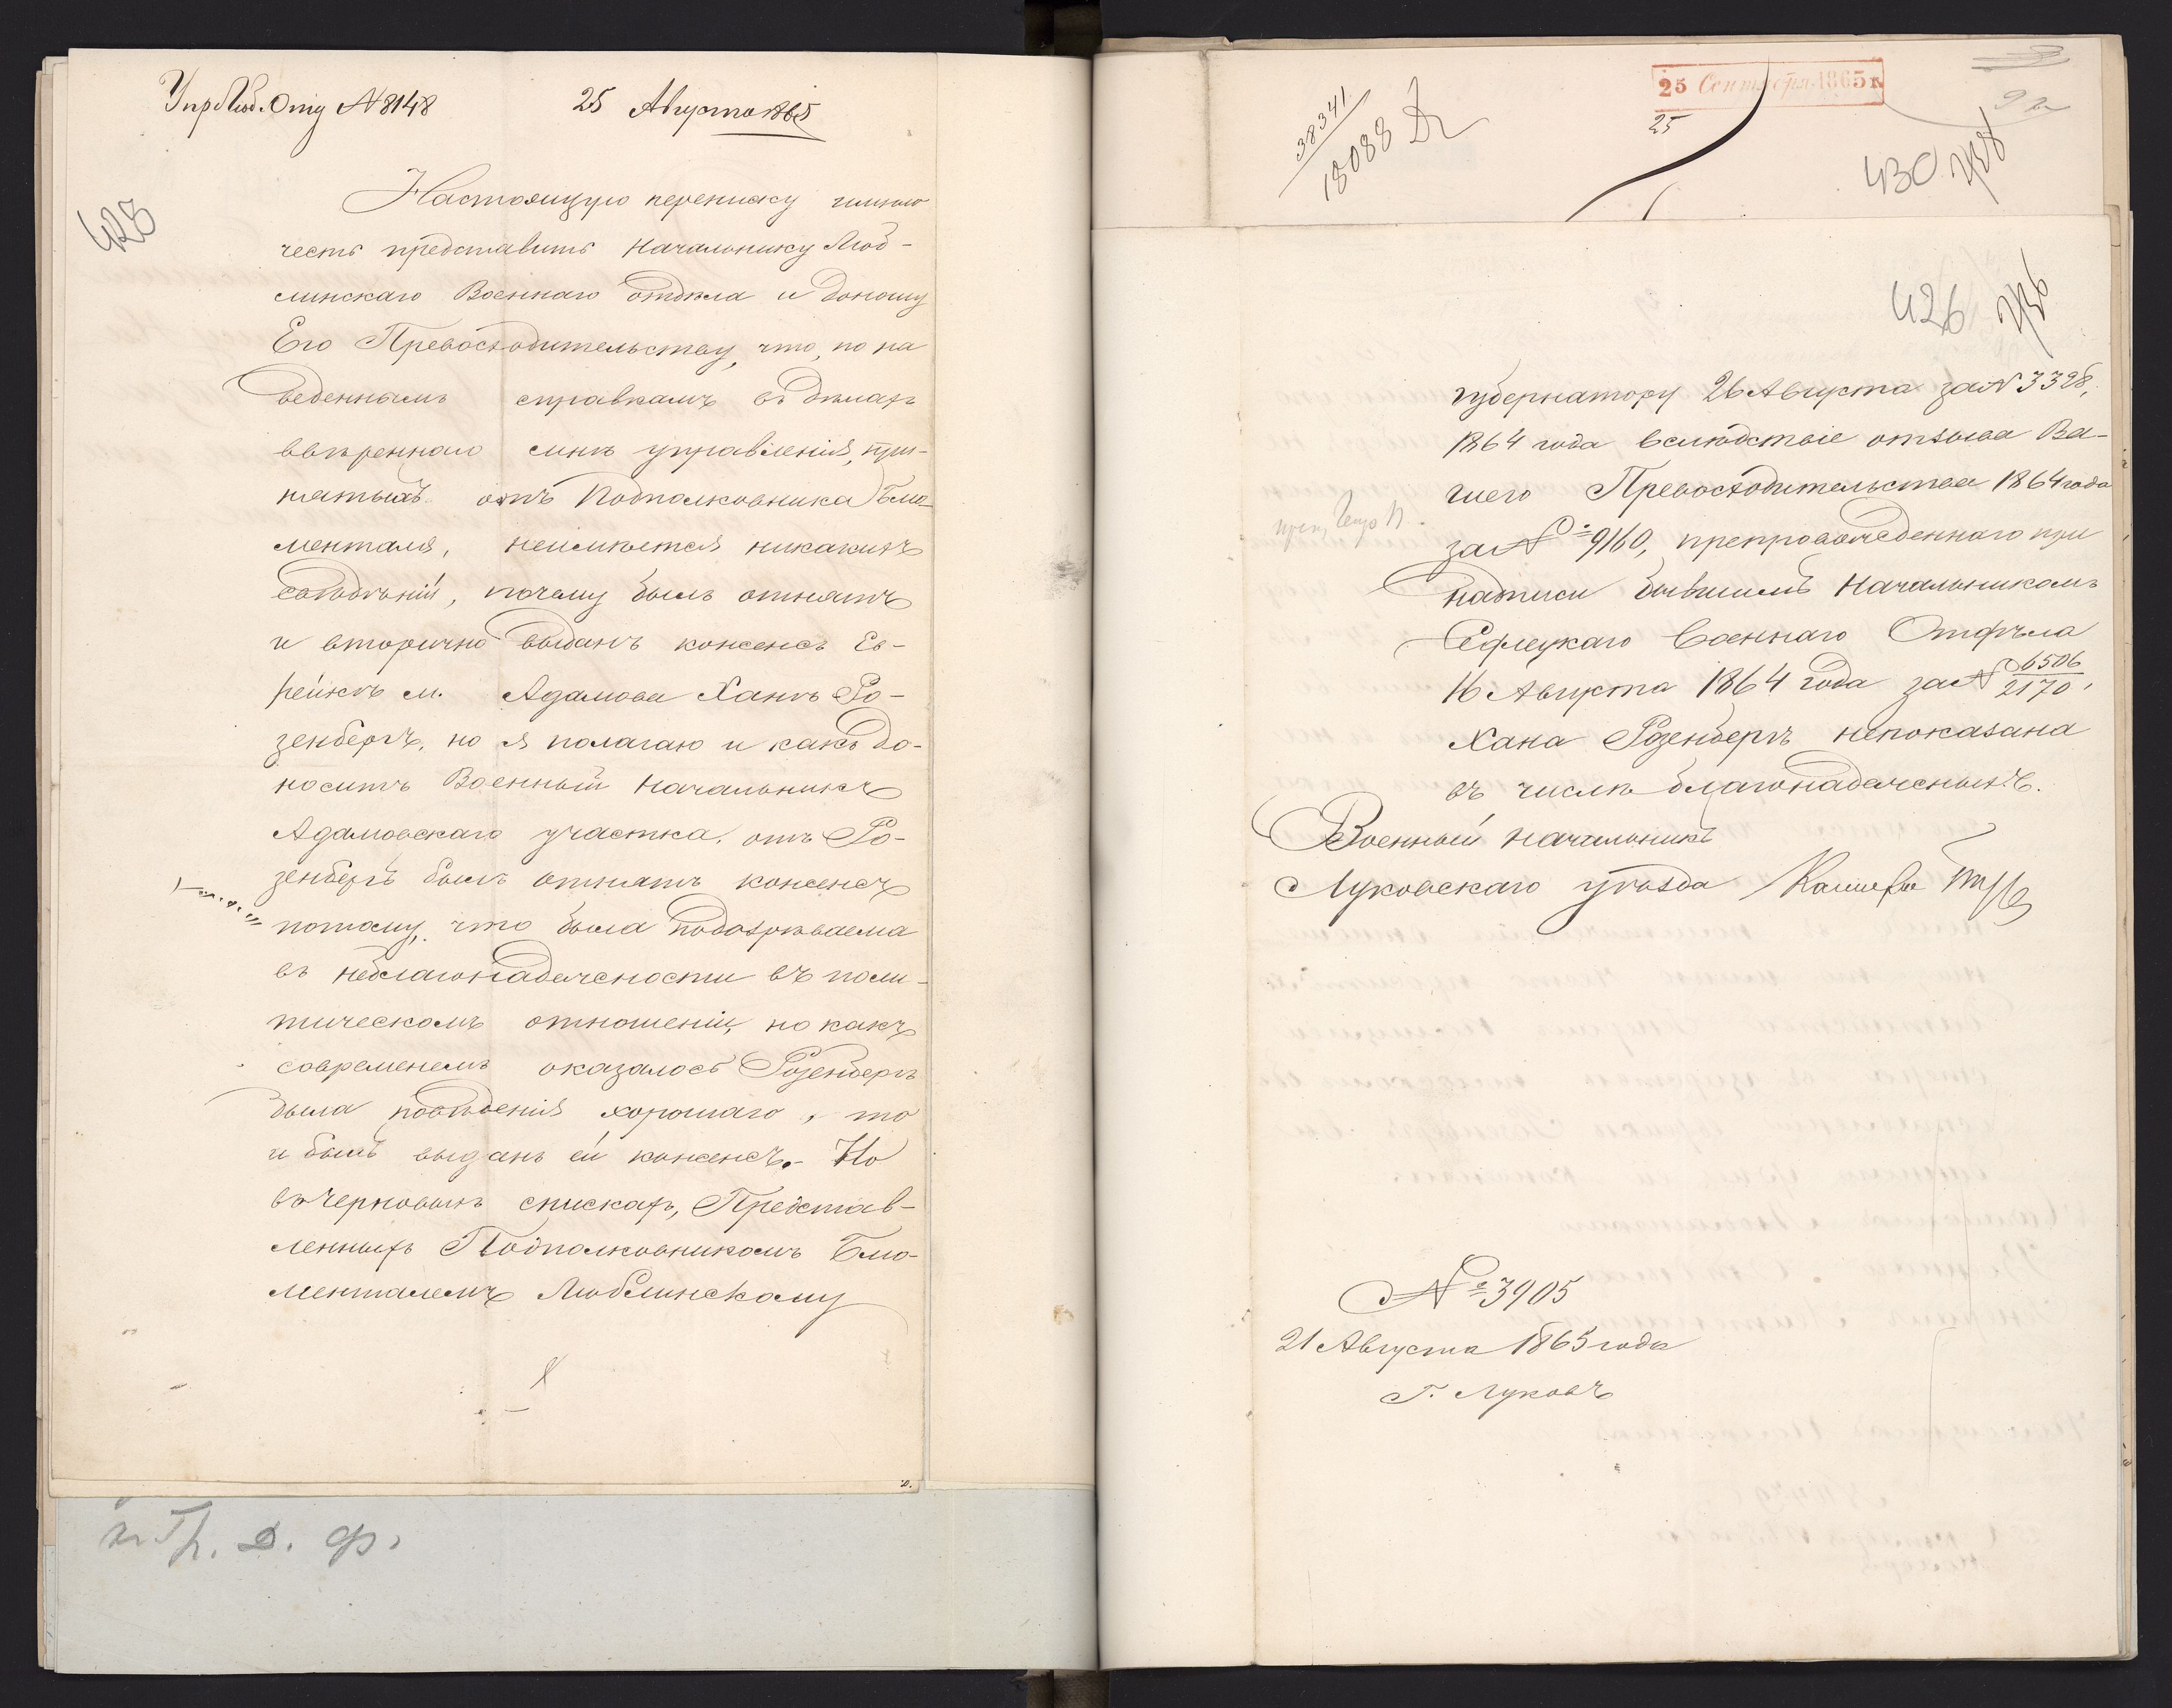 Упр. Люб. Отд № 8148 25 Августа 1865
428
Настоящую переписку имѣю
честь представить Начальнику Люб-
линскаго Военнаго отдѣла и доношу
Его Превосходительству, что, по на
веденнымъ справкамъ въ дѣлахъ
ввѣреннаго мнѣ управленія, при-
нятыхъ отъ Подполковника Блю-
менталя, неимѣется никакихъ
свѣдѣній, почему былъ отнятъ
и вторично выданъ консенсъ Ев-
рейкѣ м. Адамова Ханѣ Ро-
зенбергъ, но я полагаю и какъ до-
носитъ Военный Начальникъ
Адамовскаго участка, отъ Ро-
зенбергъ былъ отнятъ консенсъ
потому, что была подозрѣваема
въ неблагонадежности въ поли-
тическомъ отношеніи, но какъ
современемъ оказалось Розенбергъ
была поведенія хорошаго, то
и былъ выданъ ей консенсъ. - Но
въ черновыхъ спискахъ, Представ-
ленныхъ Подполковникомъ Блю-
менталемъ Люблинскому
Д. Ф.
38341
18088
25 Сентября 1865 г.
25
430
426
губернатору 26 Августа за № 3328,
1864 года вслѣдствіе отзыва Ва-
шего Превосходительства 1864 года
за № 9160, препровожденнаго при
надписи бывшимъ Начальникомъ
Сѣдлецкаго Военнаго Отдѣла
16 Августа 1864 года за № 6506/2170,
Хана Розенбергъ непоказана
въ числѣ благонадежныхъ.
Военный Начальникъ
Луковскаго уѣзда
№ 3905
21 Августа 1865 года
Г. Луковъ